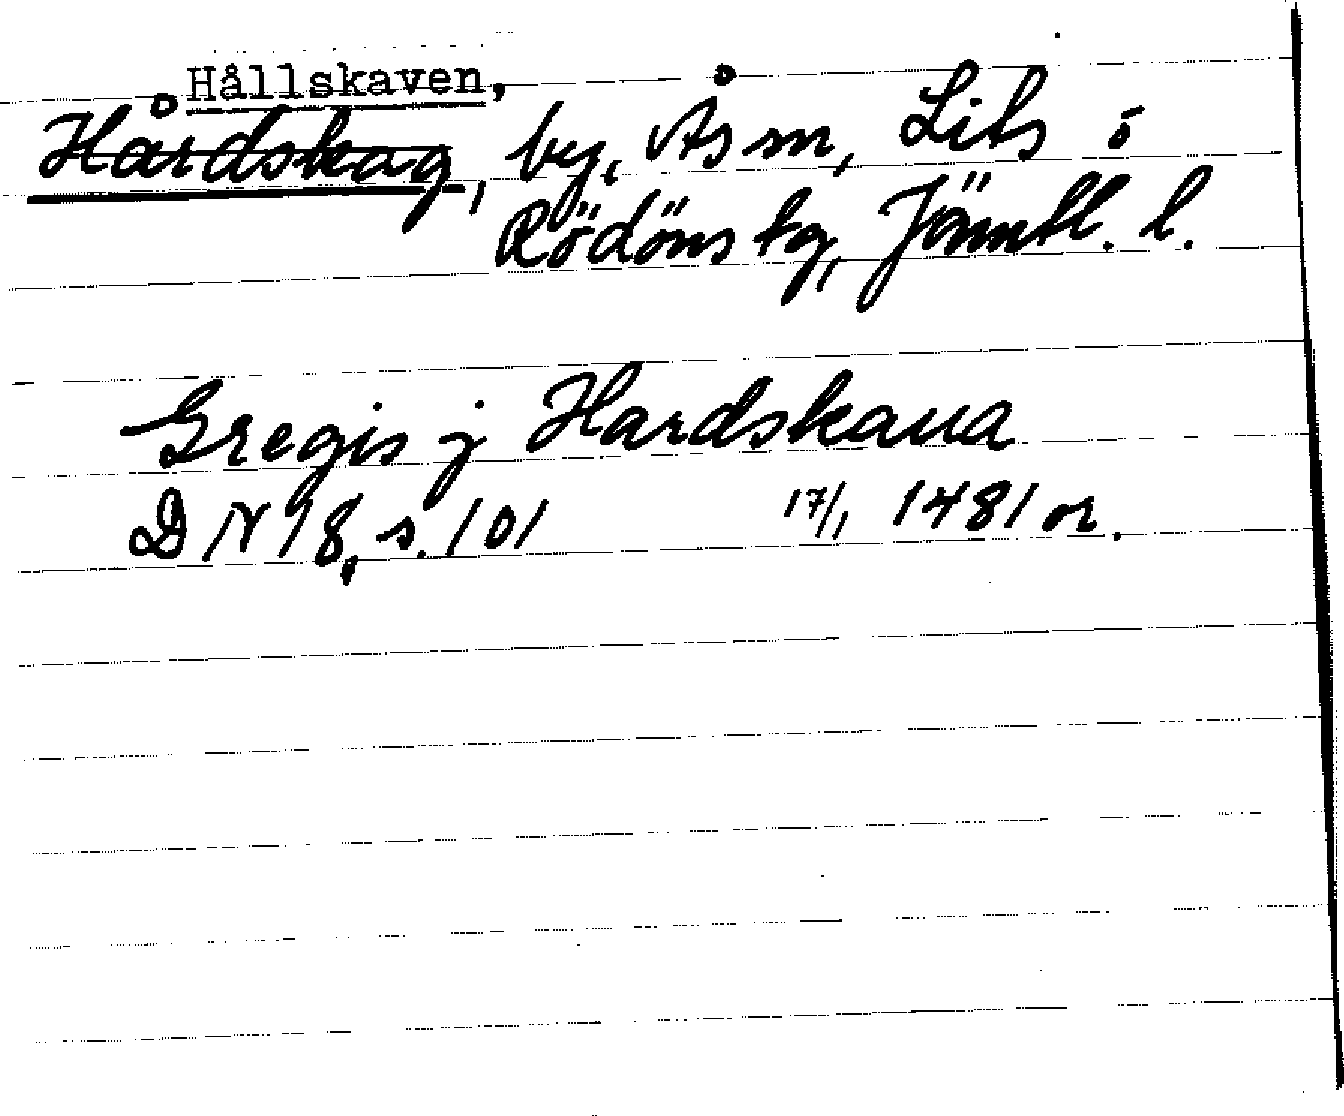 Hållskaven,
Hårdskag, by, Ås sn, Lits o
Rödöns tg, Jämtl. l.
Gregis j Hardskaua
DN 18, s. 101 17/1 1481 or.